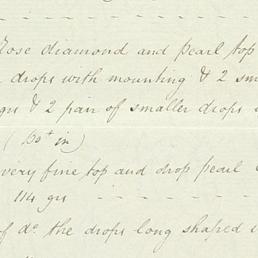 Rose diamond and pearl top
drops with mounting & 2 sm
grs & 2 pair of smaller drops
in)
very fine top and drop pearl
114 grs
of do. the drops long shaped